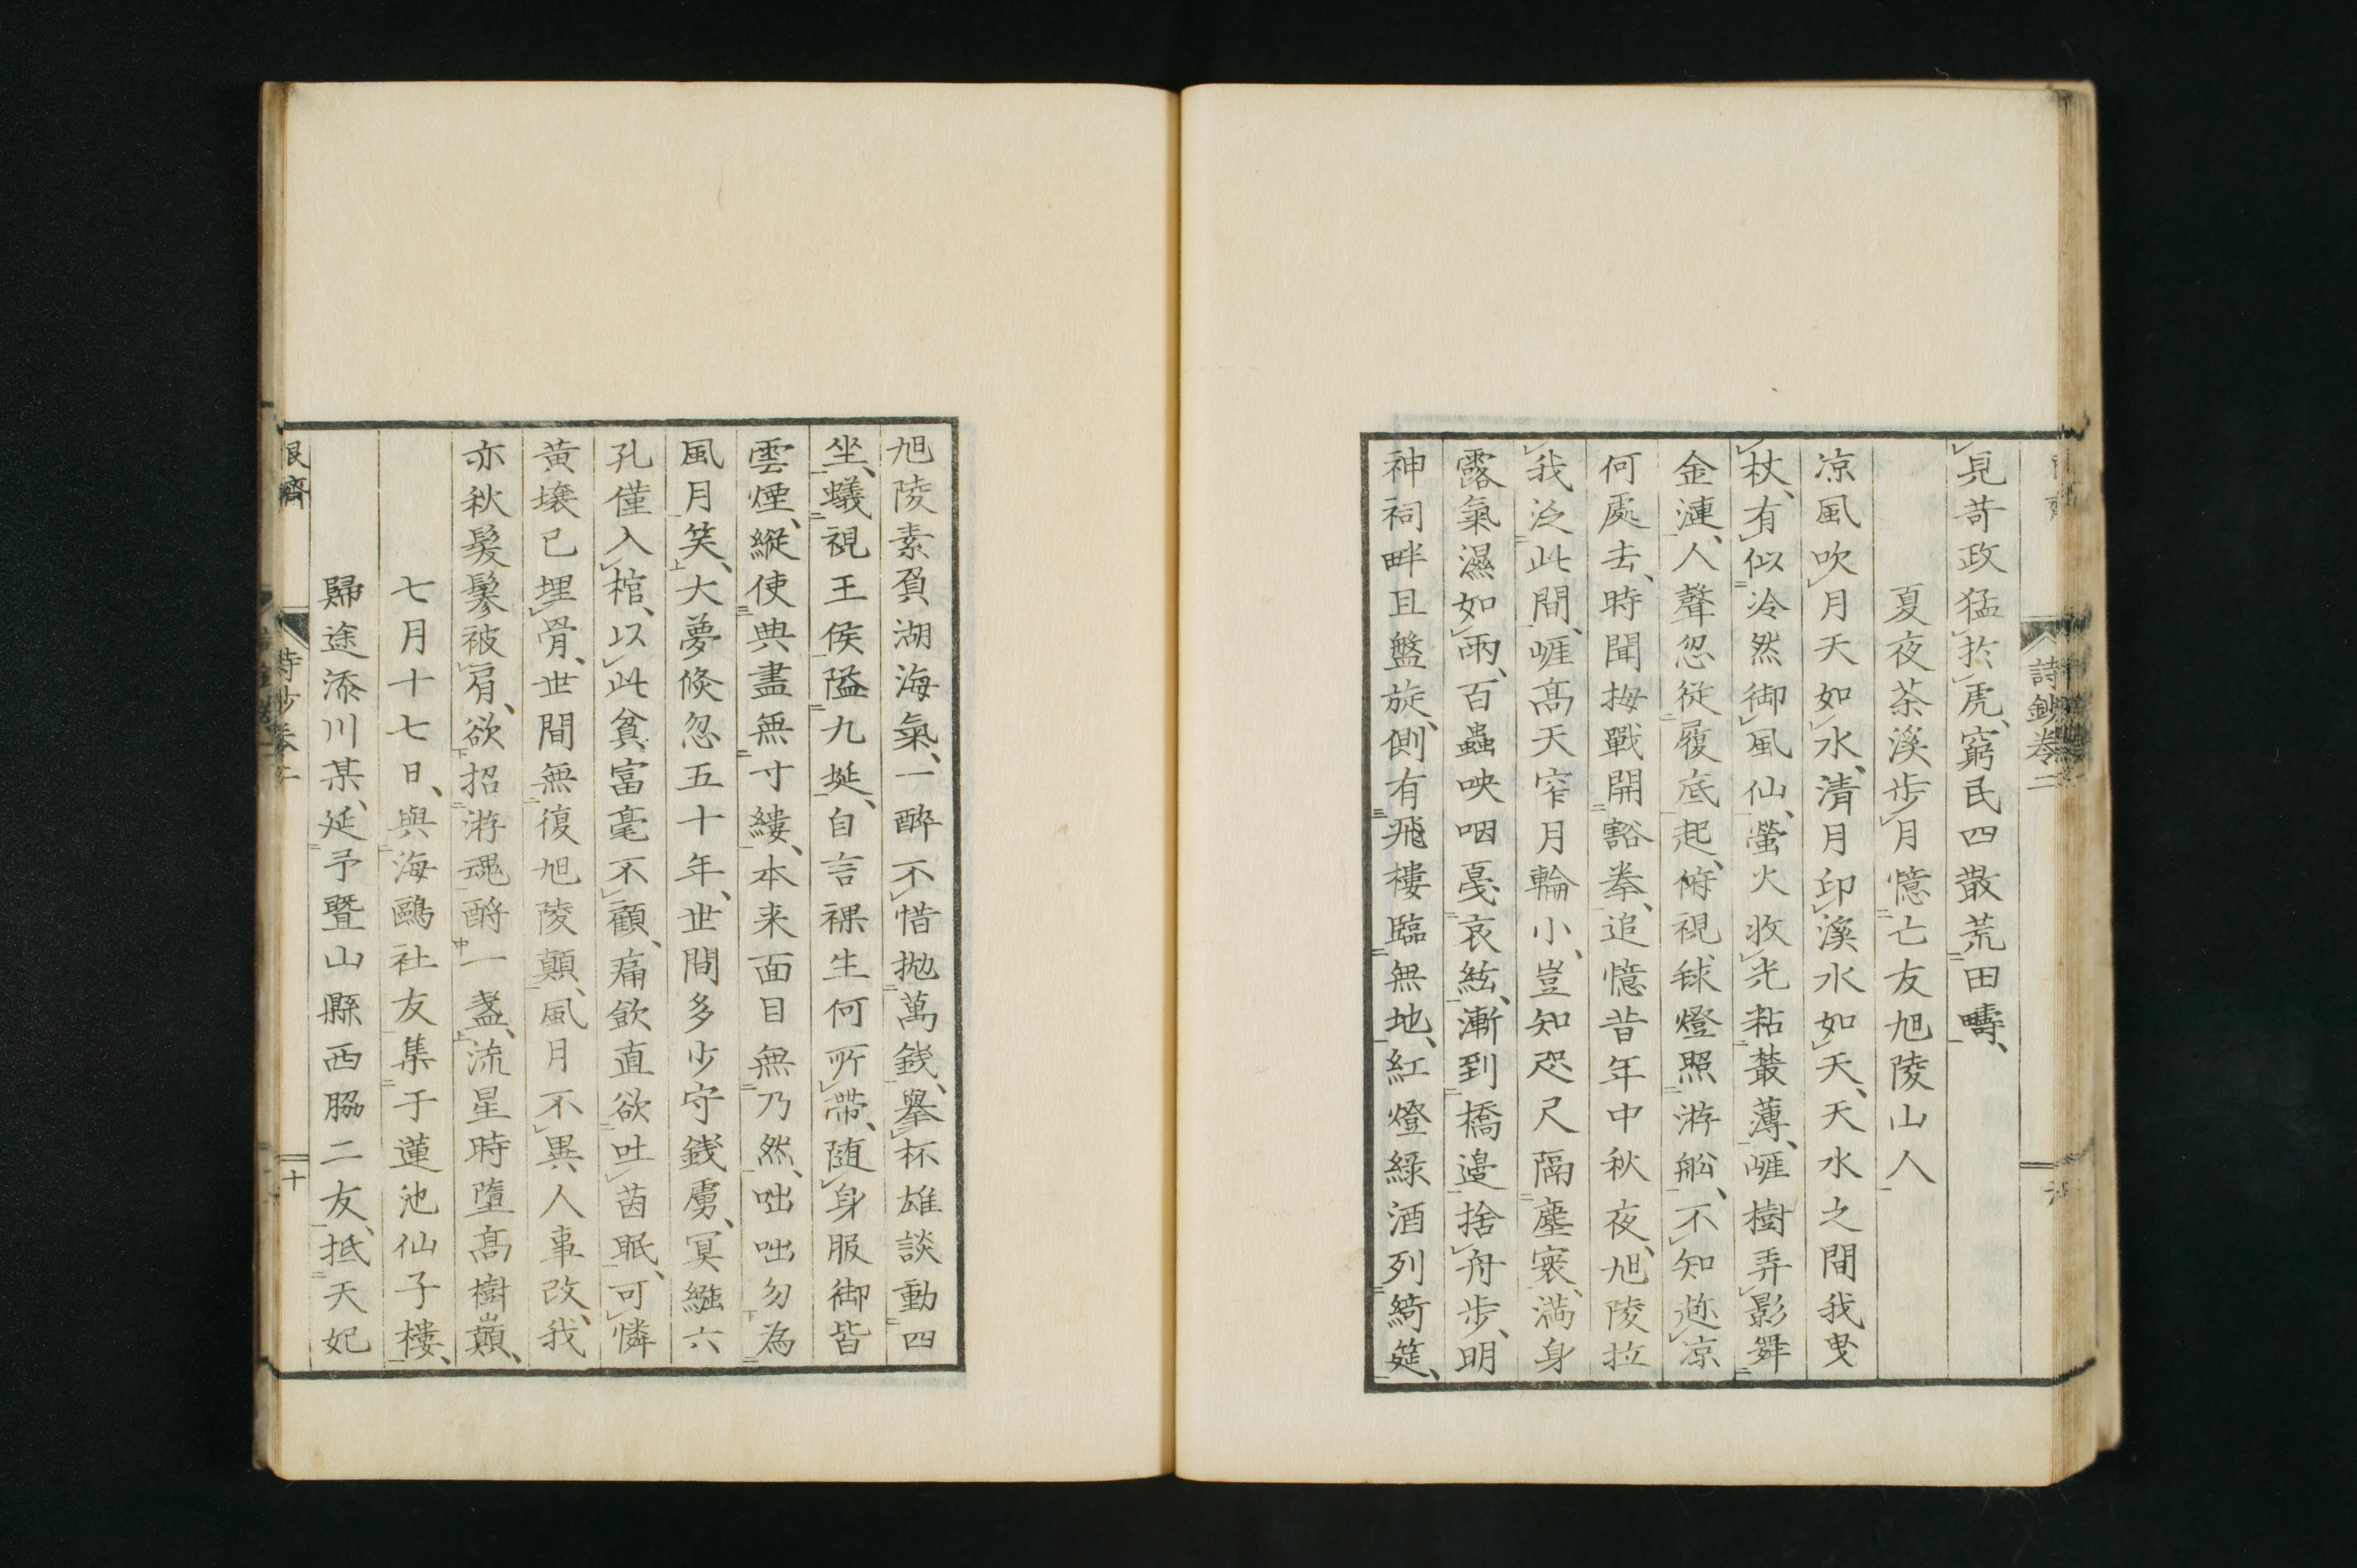 詩鈔卷二
見苛政猛於虎、窮民四散荒田疇、
夏夜茶溪步月憶亡友旭陵山人
凉風吹月天如水、清月印溪水如天、天水之間我曳
杖、有似泠然御風仙、螢火收光粘叢薄、崕樹弄影舞
金漣、人聲忽從履底起、俯視毬燈照游舩、不知趂凉
何處去、時聞拇戰開豁拳、追憶昔年中秋夜、旭陵拉
我泛此間、崕髙天窄月輪小、豈知咫尺隔塵寰、満身
露氣濕如雨、百蟲咉咽戞哀絃、漸到橋邉捨舟步、明
神祠畔且盤旋、側有飛樓臨無地、紅燈緑酒列綺筵、
旭陵素負湖海氣、一醉不惜抛萬銭、擧杯雄談動四
坐、蟻視王侯隘九埏、自言裸生何所帶、随身服御皆
雲煙、縱使典盡無寸縷、本来面目無乃然、咄咄勿為
風月笑、大夢倏忽五十年、世間多少守銭虜、冥緇六
孔僅入棺、以此貧富毫不顧、痛飲直欲吐茵眠、可憐
黄壌已埋骨、世間無復旭陵顛、風月不異人事改、我
亦秋髮鬖被肩、欲招游魂酹一盞、流星時墮髙樹巔、
七月十七日、與海鷗社友集于蓮池仙子樓、
歸途添川某、延予暨山縣西脇二友、抵天妃
詩鈔卷二
十